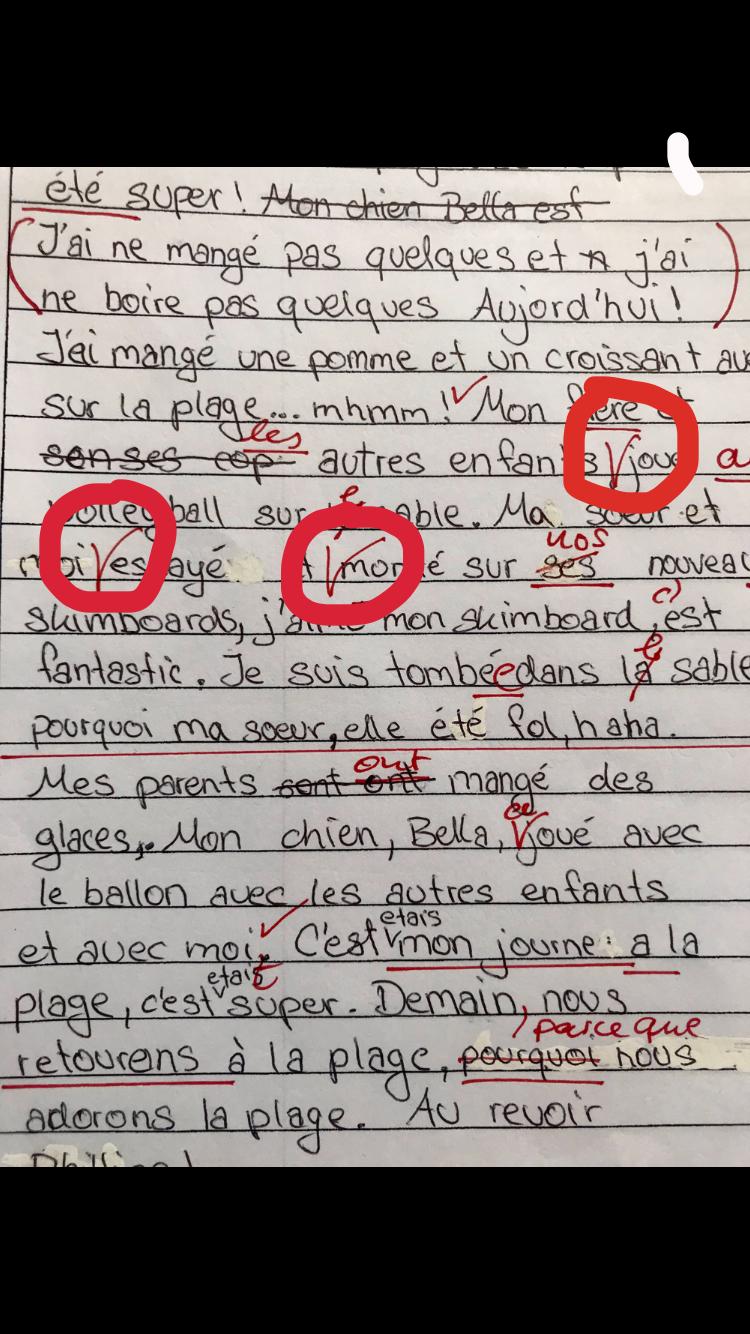 été super! Mon chien Bella est
J'ai ne mangé pas quelques et n j'ai
ne boire pas quelques Aujord'hui!
J'ai mangé une pomme et un croissant
sur la plage... mhmm! Mon frère et
les
autres enfants joué a
volleyball sur le sable. Ma soeur et
nos
moi essayé et monté sur ses nouveau
skimboards, j'aime mon skimboard, c'est
fantastic. Je suis tombée dans le sable
pourquoi ma soeur, elle été fol, haha.
ont
Mes parents sont ont mangé des
glaces. Mon chien, Bella, joué avec
le ballon avec les autres enfants
etais
et avec moi. C'est mon journe: a la
etait
plage, c'est super. Demain, nous
parce que
retourens à la plage, pourquoi nous
adorons la plage. Au revoir